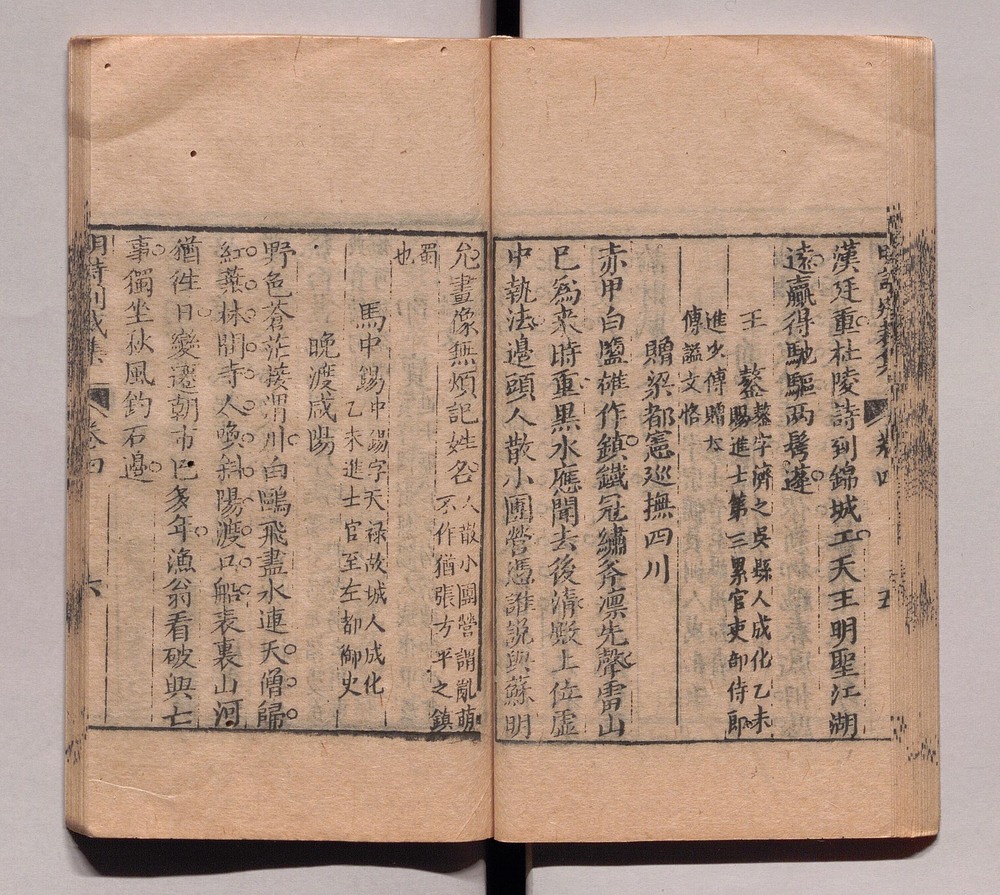 漢廷重杜陵詩到錦城工天王明聖江湖
遠贏得馳驅兩鬂蓬
王鏊
鏊字濟之吳縣人成化乙未
賜進士第三累官吏部侍郎
進少傅贈太
傅謚文恪
贈梁都憲巡撫四川
赤甲白鹽雄作鎮鐵冠繡斧凛先聲雷山
巳爲來時重黒水應聞去後清殿上位虛
中執法邉頭人散小團營憑誰說與蘇明
允畫像無煩記姓名
人散小團營謂亂萌
不作猶張方平之鎮
蜀
也
馬中錫
中錫字天禄故城人成化
乙未進士官至左都御史
晚渡咸陽
野色蒼茫接渭川白鷗飛盡水連天僧歸
紅葉林間寺人喚斜陽渡口船表裏山河
猶徃日變遷朝市巳多年漁翁看破興亡
事獨坐秋風釣石邉
卷四
六